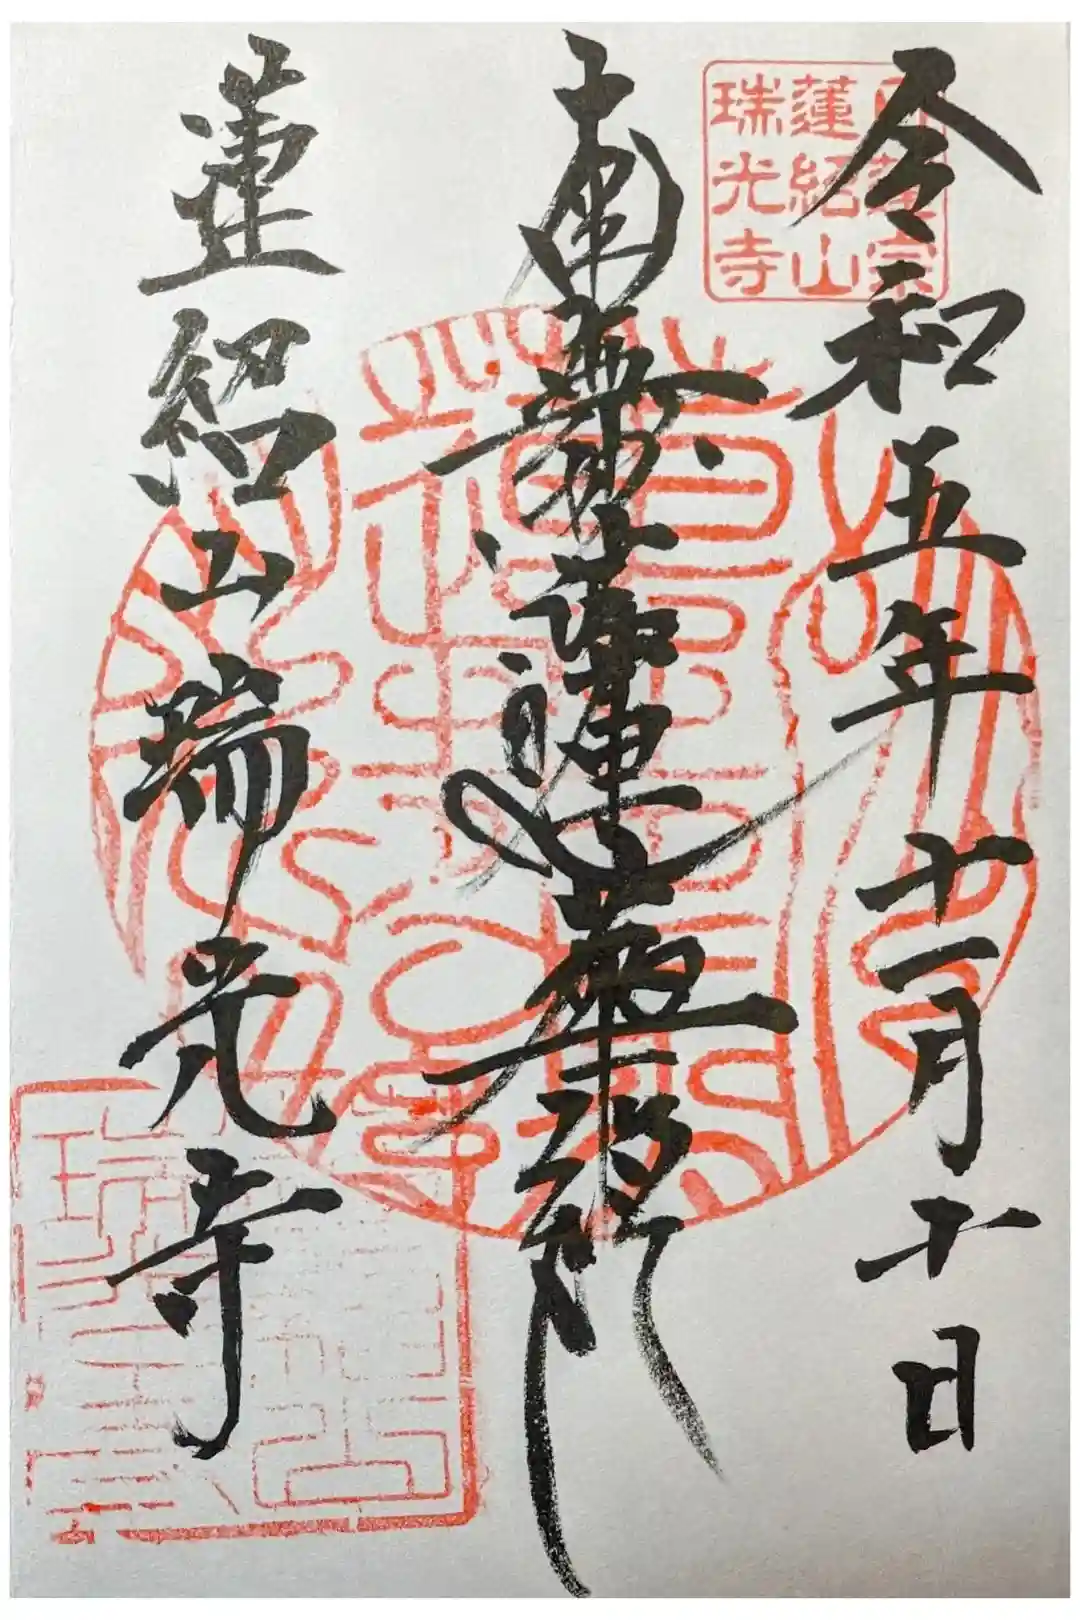 日蓮宗
蓮紹山
瑞光寺
令和五年十一月十日
南無妙法蓮華経
蓮紹山瑞光寺